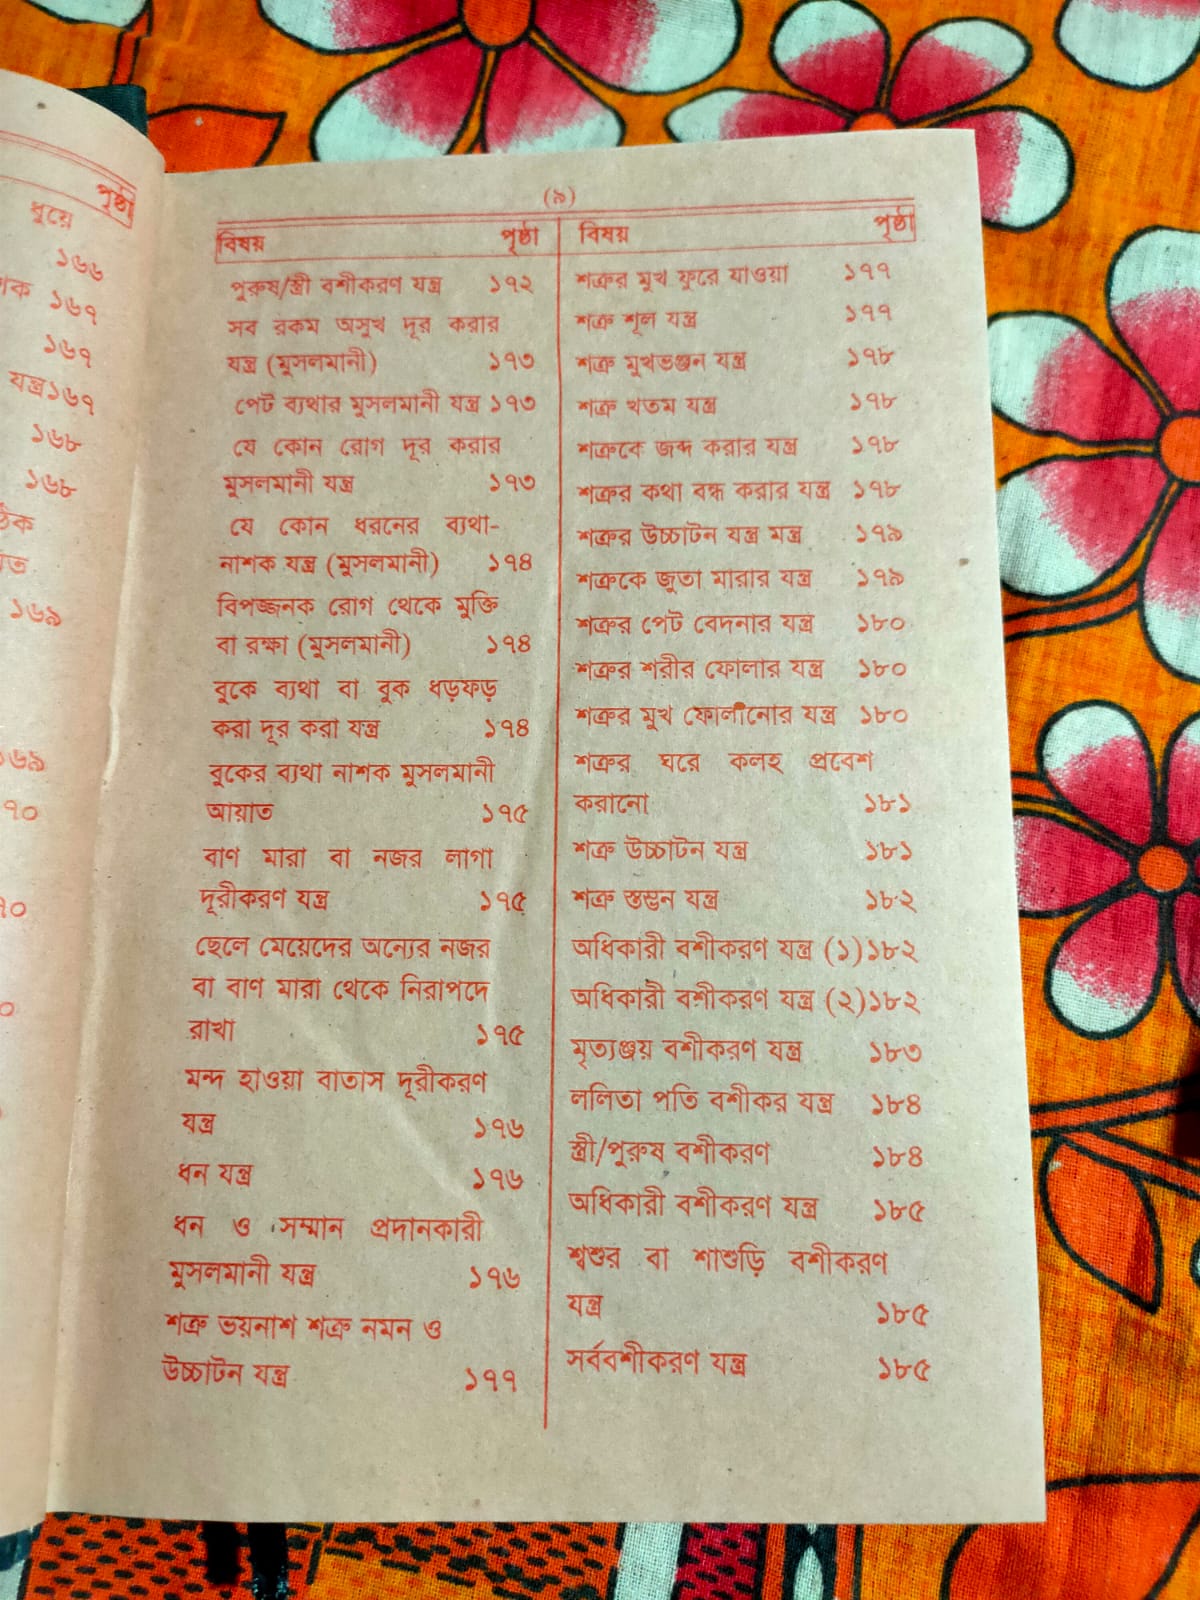 পৃষ্ঠা
ধুয়ে
১৬৬
১৬৭
১৬৭
যন্ত্র ১৬৭
১৬৮
১৬৮
১৬৯
(৯)
বিষয় পৃষ্ঠা
পুরুষ/স্ত্রী বশীকরণ যন্ত্র ১৭২
সব রকম অসুখ দূর করার
যন্ত্র (মুসলমানী) ১৭৩
পেট ব্যথার মুসলমানী যন্ত্র ১৭৩
যে কোন রোগ দূর করার
মুসলমানী যন্ত্র ১৭৩
যে কোন ধরনের ব্যথা-
নাশক যন্ত্র (মুসলমানী) ১৭৪
বিপজ্জনক রোগ থেকে মুক্তি
বা রক্ষা (মুসলমানী) ১৭৪
বুকে ব্যথা বা বুক ধড়ফড়
করা দূর করা যন্ত্র ১৭৪
বুকের ব্যথা নাশক মুসলমানী
আয়াত ১৭৫
বাণ মারা বা নজর লাগা
দূরীকরণ যন্ত্র ১৭৫
ছেলে মেয়েদের অন্যের নজর
বা বাণ মারা থেকে নিরাপদে
রাখা ১৭৫
মন্দ হাওয়া বাতাস দূরীকরণ
যন্ত্র ১৭৬
ধন যন্ত্র ১৭৬
ধন ও সম্মান প্রদানকারী
মুসলমানী যন্ত্র ১৭৬
শত্রু ভয়নাশ শত্রু নমন ও
উচ্চাটন যন্ত্র ১৭৭
বিষয় পৃষ্ঠা
শত্রুর মুখ ফুরে যাওয়া ১৭৭
শত্রু শূল যন্ত্র ১৭৭
শত্রু মুখভঞ্জন যন্ত্র ১৭৮
শত্রু খতম যন্ত্র ১৭৮
শত্রুকে জব্দ করার যন্ত্র ১৭৮
শত্রুর কথা বন্ধ করার যন্ত্র ১৭৮
শত্রুর উচ্চাটন যন্ত্র মন্ত্র ১৭৯
শত্রুকে জুতা মারার যন্ত্র ১৭৯
শত্রুর পেট বেদনার যন্ত্র ১৮০
শত্রুর শরীর ফোলার যন্ত্র ১৮০
শত্রুর মুখ ফোলানোর যন্ত্র ১৮০
শত্রুর ঘরে কলহ প্রবেশ
করানো ১৮১
শত্রু উচ্চাটন যন্ত্র ১৮১
শত্রু স্তম্ভন যন্ত্র ১৮২
অধিকারী বশীকরণ যন্ত্র (১) ১৮২
অধিকারী বশীকরণ যন্ত্র (২) ১৮২
মৃত্যুঞ্জয় বশীকরণ যন্ত্র ১৮৩
ললিতা পতি বশীকর যন্ত্র ১৮৪
স্ত্রী/পুরুষ বশীকরণ ১৮৪
অধিকারী বশীকরণ যন্ত্র ১৮৫
শ্বশুর বা শাশুড়ি বশীকরণ
যন্ত্র ১৮৫
সর্ববশীকরণ যন্ত্র ১৮৫